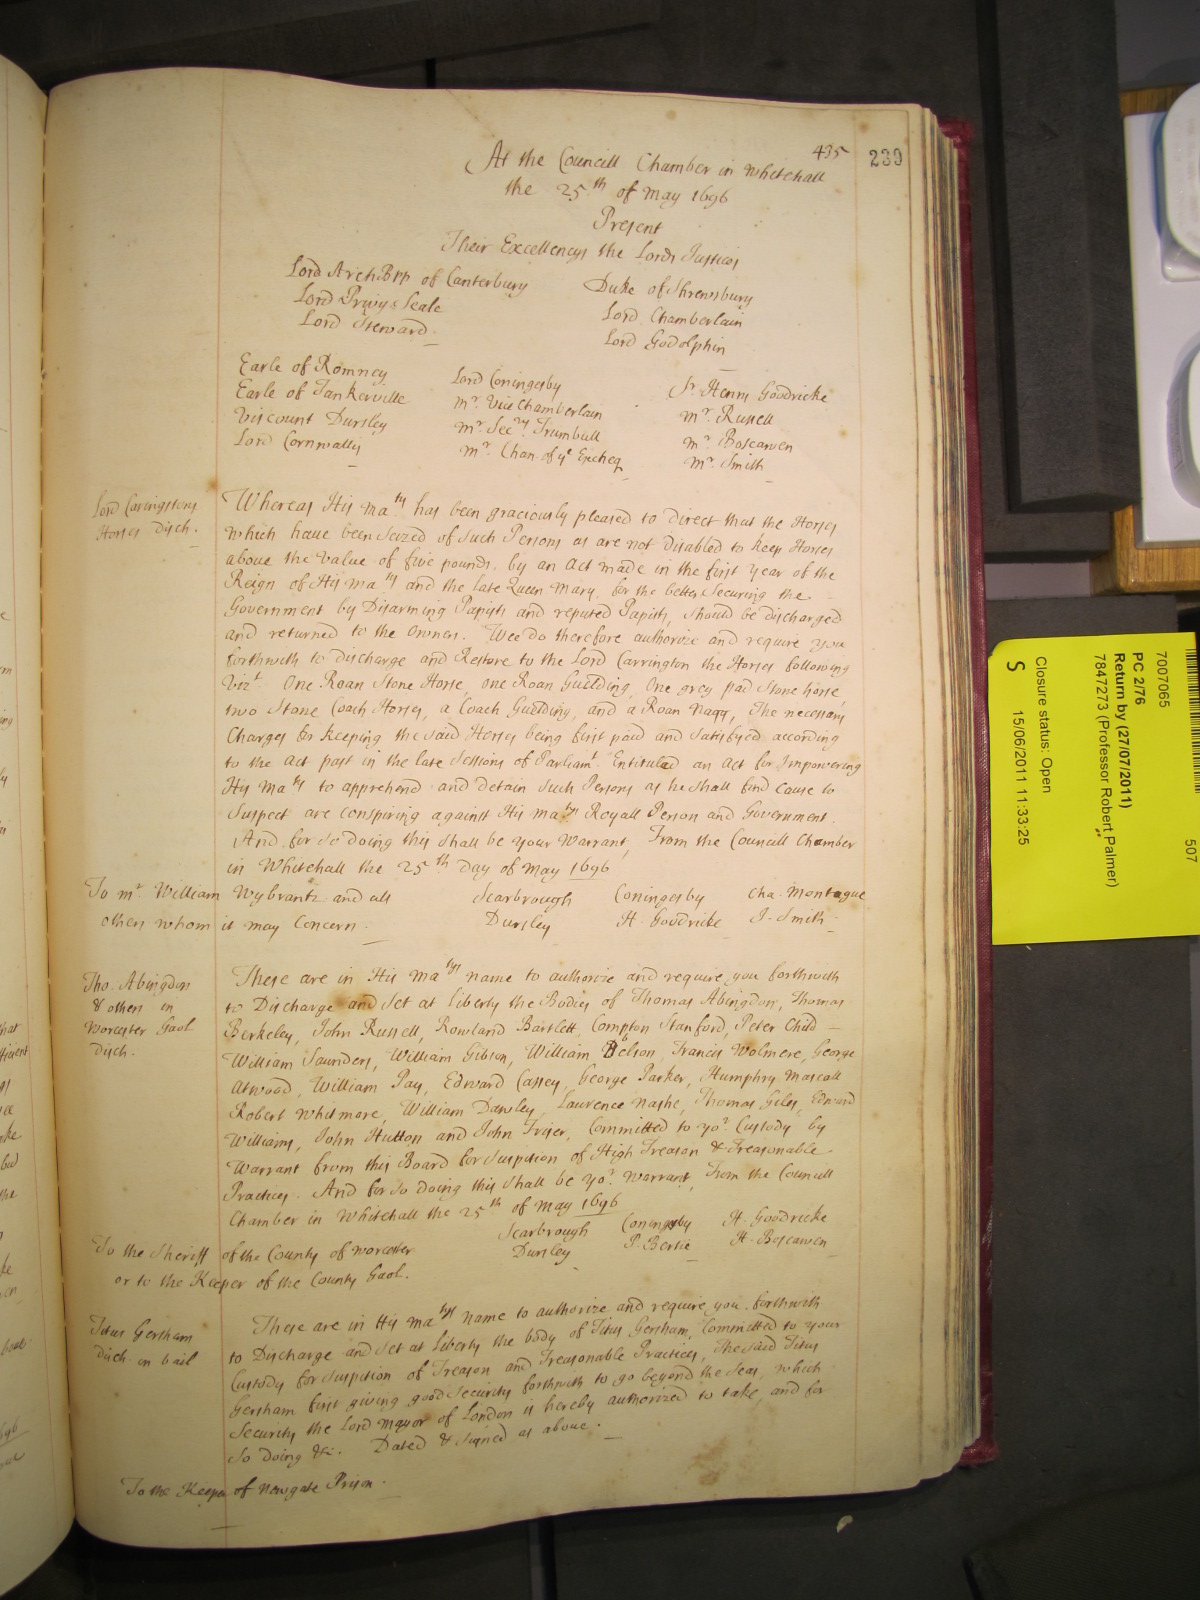 435
239
At the Councill Chamber in Whitehall
the 25th of May 1696
Present
Their Excellencys the Lords Justices
Lord ArchBpp of Canterbury
Lord Privy Seale
Lord Steward
Duke of Shrewsbury
Lord Chamberlain
Lord Godolphin
Earle of Romney
Earle of Tankerville
Viscount Dursley
Lord Cornwallis
Lord Coningesby
Mr. Vice Chamberlain
Mr. Secry. Trumbull
Mr. Chan. of ye Excheq.
Sr. Henry Goodricke
Mr. Russell
Mr. Boscawen
Mr. Smith
Lord Carringtons
Horses Disch.
Whereas His Maty has been graciously pleased to direct that the Horses
which have been seized of such Persons as are not disabled to keep Horses
above the value of five pounds, by an Act made in the first year of the
Reign of His Maty and the late Queen Mary, for the better Securing the
Government by Disarming Papists and reputed Papists, should be discharged
and returned to the Owners. Wee do therefore authorize and require you
forthwith to discharge and Restore to the Lord Carrington the Horses following
Vizt. One Roan Stone Horse, one Roan Guelding, One grey pad Stone horse
two Stone Coach Horses, a Coach Guelding, and a Roan Nagg, The necessary
Charges for keeping the said Horses being first paid and satisfyed according
to the Act past in the late Sessions of Parliamt. Entituled an Act for Impowering
His Maty to apprehend and detain such Persons as he shall find cause to
Suspect are conspiring against His Matys Royall Person and Government.
And for so doing this shall be your Warrant, From the Councill Chamber
in Whitehall the 25th Day of May 1696
To Mr. William Wybrants and all
others whom it may Concern
Scarbrough Coningesby Cha. Montague
Dursley H. Goodricke J. Smith
Tho. Abingdon
& others in
Worcester Gaol
Disch.
These are in His Matys name to authorize and require you forthwith
to Discharge and set at liberty the Bodies of Thomas Abingdon, Thomas
Berkeley, John Russell, Rowland Bartlett, Compton Stanford, Peter Child
William Saunders, William Gibson, William Belson, Francis Wolmere, George
Atwood, William Pay, Edward Cassey, George Parker, Humphry Mascall
Robert Whitmore, William Dawley, Laurence Nashe, Thomas Giles, Edward
Williams, John Hutton and John Trijer, Committed to yor. Custody by
Warrant from this Board for suspition of High Treason & Treasonable
Practices. And for so doing this shall be yor. Warrant, From the Councill
Chamber in Whitehall the 25th of May 1696
Scarbrough Coningesby H. Goodricke
Dursley P. Bertie H. Boscawen
To the Sheriff of the County of Worcester
or to the Keeper of the County Gaol.
Titus Gersham
Disch. on bail
These are in His Matys name to authorize and require you forthwith
to Discharge and set at liberty the body of Titus Gersham, Committed to your
Custody for suspition of Treason and Treasonable Practices, The said Titus
Gersham first giving good Security forthwith to go beyond the Seas, which
Security the Lord Mayor of London is hereby authorized to take, and for
So doing &c. Dated & Signed as above.
To the Keeper of Newgate Prison.
7007065
507
PC 2/76
Return by (27/07/2011)
7847273 (Professor Robert Palmer)
Closure status: Open
S 15/06/2011 11:33:25